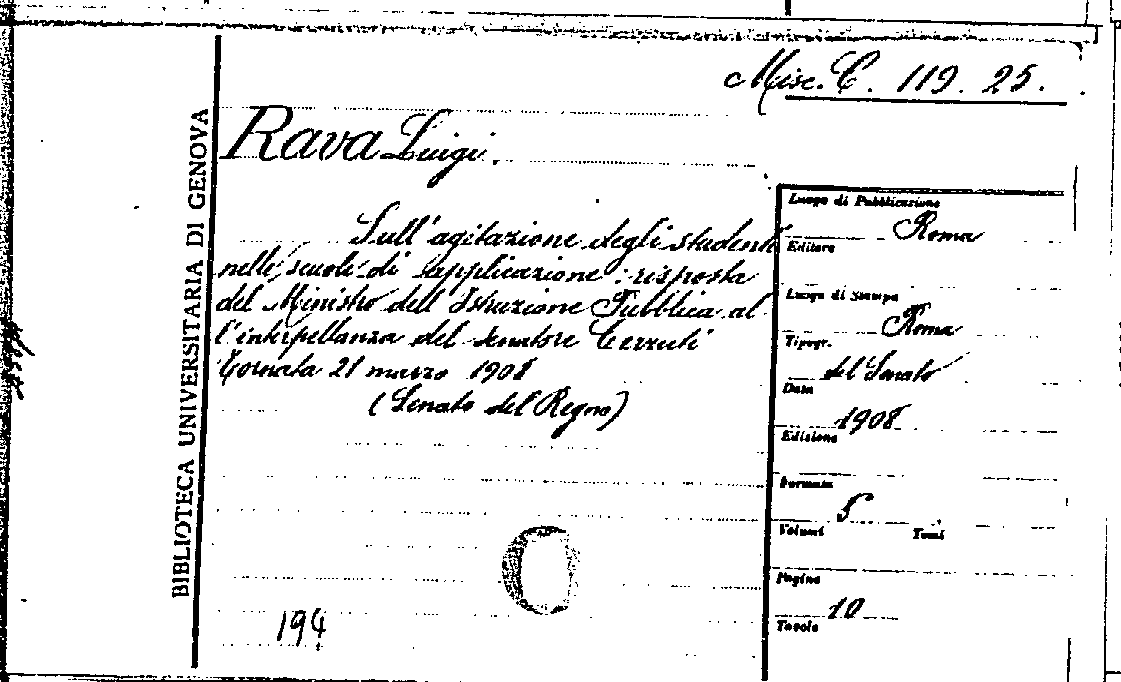 Misc. C. 119. 25.
BIBLIOTECA UNIVERSITARIA DI GENOVA
Rava Luigi.
Sull'agitazione degli studenti
nelle scuole di applicazione: risposta
del Ministro dell'Istruzione Pubblica al
l'interpellanza del Senatore Cerruti
Tornata 21 marzo 1908
(Senato del Regno)
194
Luogo di Pubblicazione
Roma
Editore
Luogo di Stampa
Roma
Tipogr.
del Senato
Data
1908
Edizione
Formato
Volumi Tomi
Pagine
10
Tavole